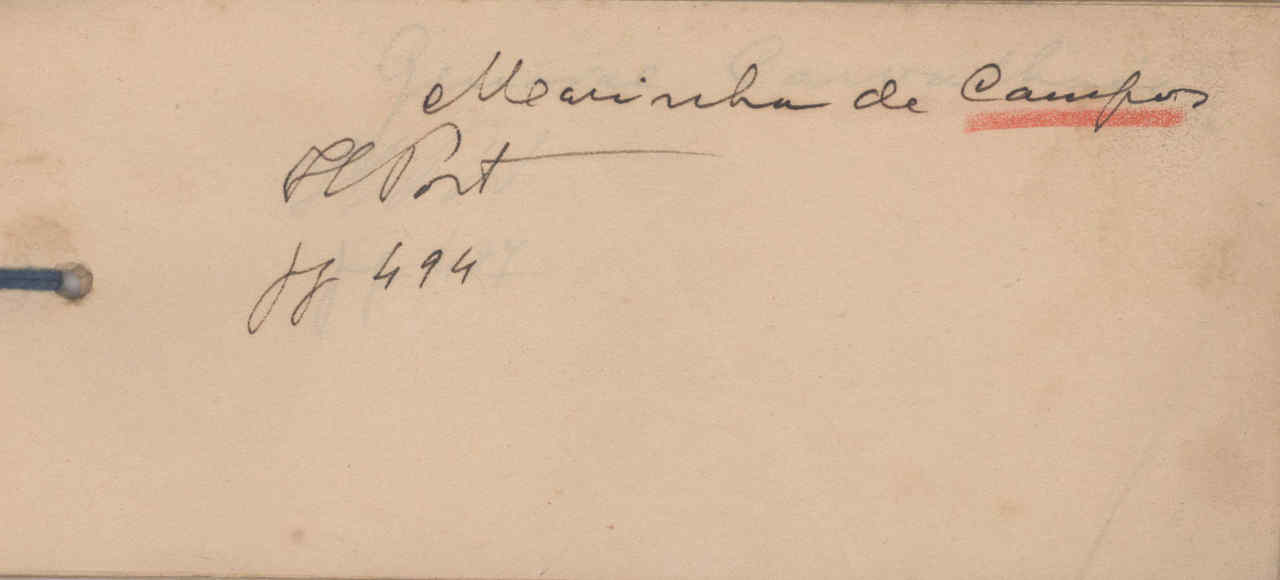 Marinha de Campos
Il Port
pg 494